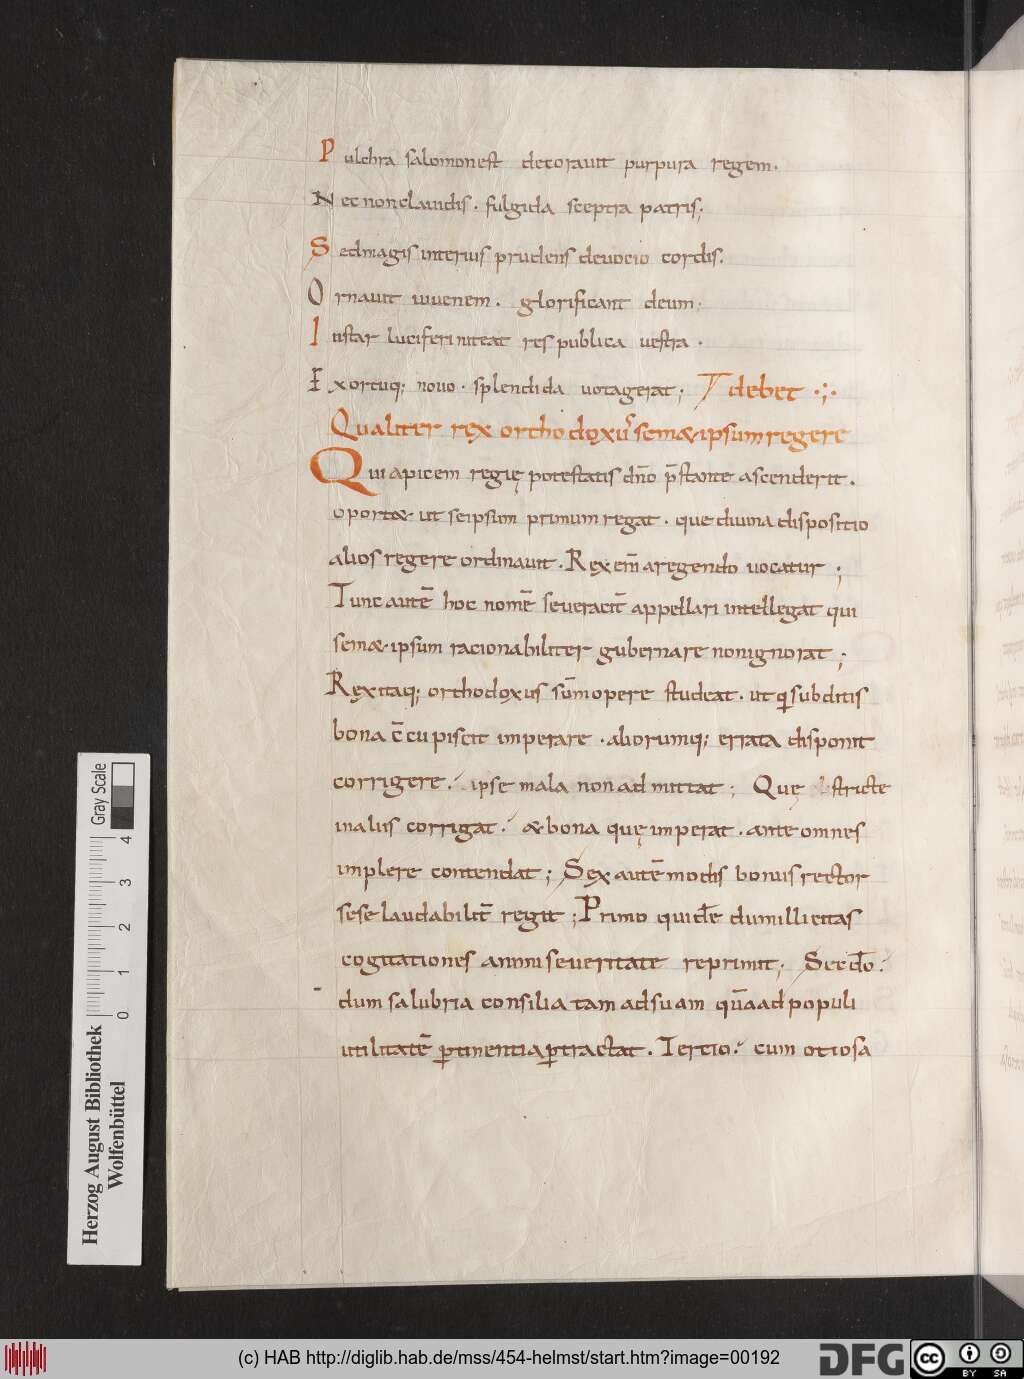 Pulchra salomon est decorauit purpura regem.
Nec non clauidis. fulgida sceptra patris;
Sed magis interius prudens deuocio cordis.
Ornauit iuuenem. glorificant deum.
Instar luciferi niteat res publica uestra.
Exortuq; nouo. splendida uota gerat;
debet
Qualiter rex orthodoxus̄ sem& ipsum regere
Qui apicem regię potestatis dn̄o p̄stante ascenderit.
oport& ut seipsum primum regat. que diuina dispositio
alios regere ordinauit. Rex em̄ a regendo uocatur;
Tunc autē hoc nomē se ueracit̄ appellari intellegat qui
sem& ipsum racionabiliter gubernare non ignorat;
Rex itaq; orthodoxus sūmopere studeat. ut qi subditis
bona c̄cupiscit imperare. aliorumq; errata disponit
corrigere. ipse mala non admittat; Quę stricte
in aliis corrigat. & bona quę imperat. ante omnes
implere contendat; Sex autē modis bonus rector
sese laudabilit̄ regit; Primo quidē dum illicitas
cogitationes animi seueritate reprimit; Secd̄o.
dum salubria consilia tam ad suam quā ad populi
utilitatē ꝑtinentia ꝑtractat. Tercio. cum otiosa
Gray Scale
0 1 2 3 4
Herzog August Bibliothek
Wolfenbüttel
(c) HAB http://diglib.hab.de/mss/454-helmst/start.htm?image=00192
DFG
cc BY SA